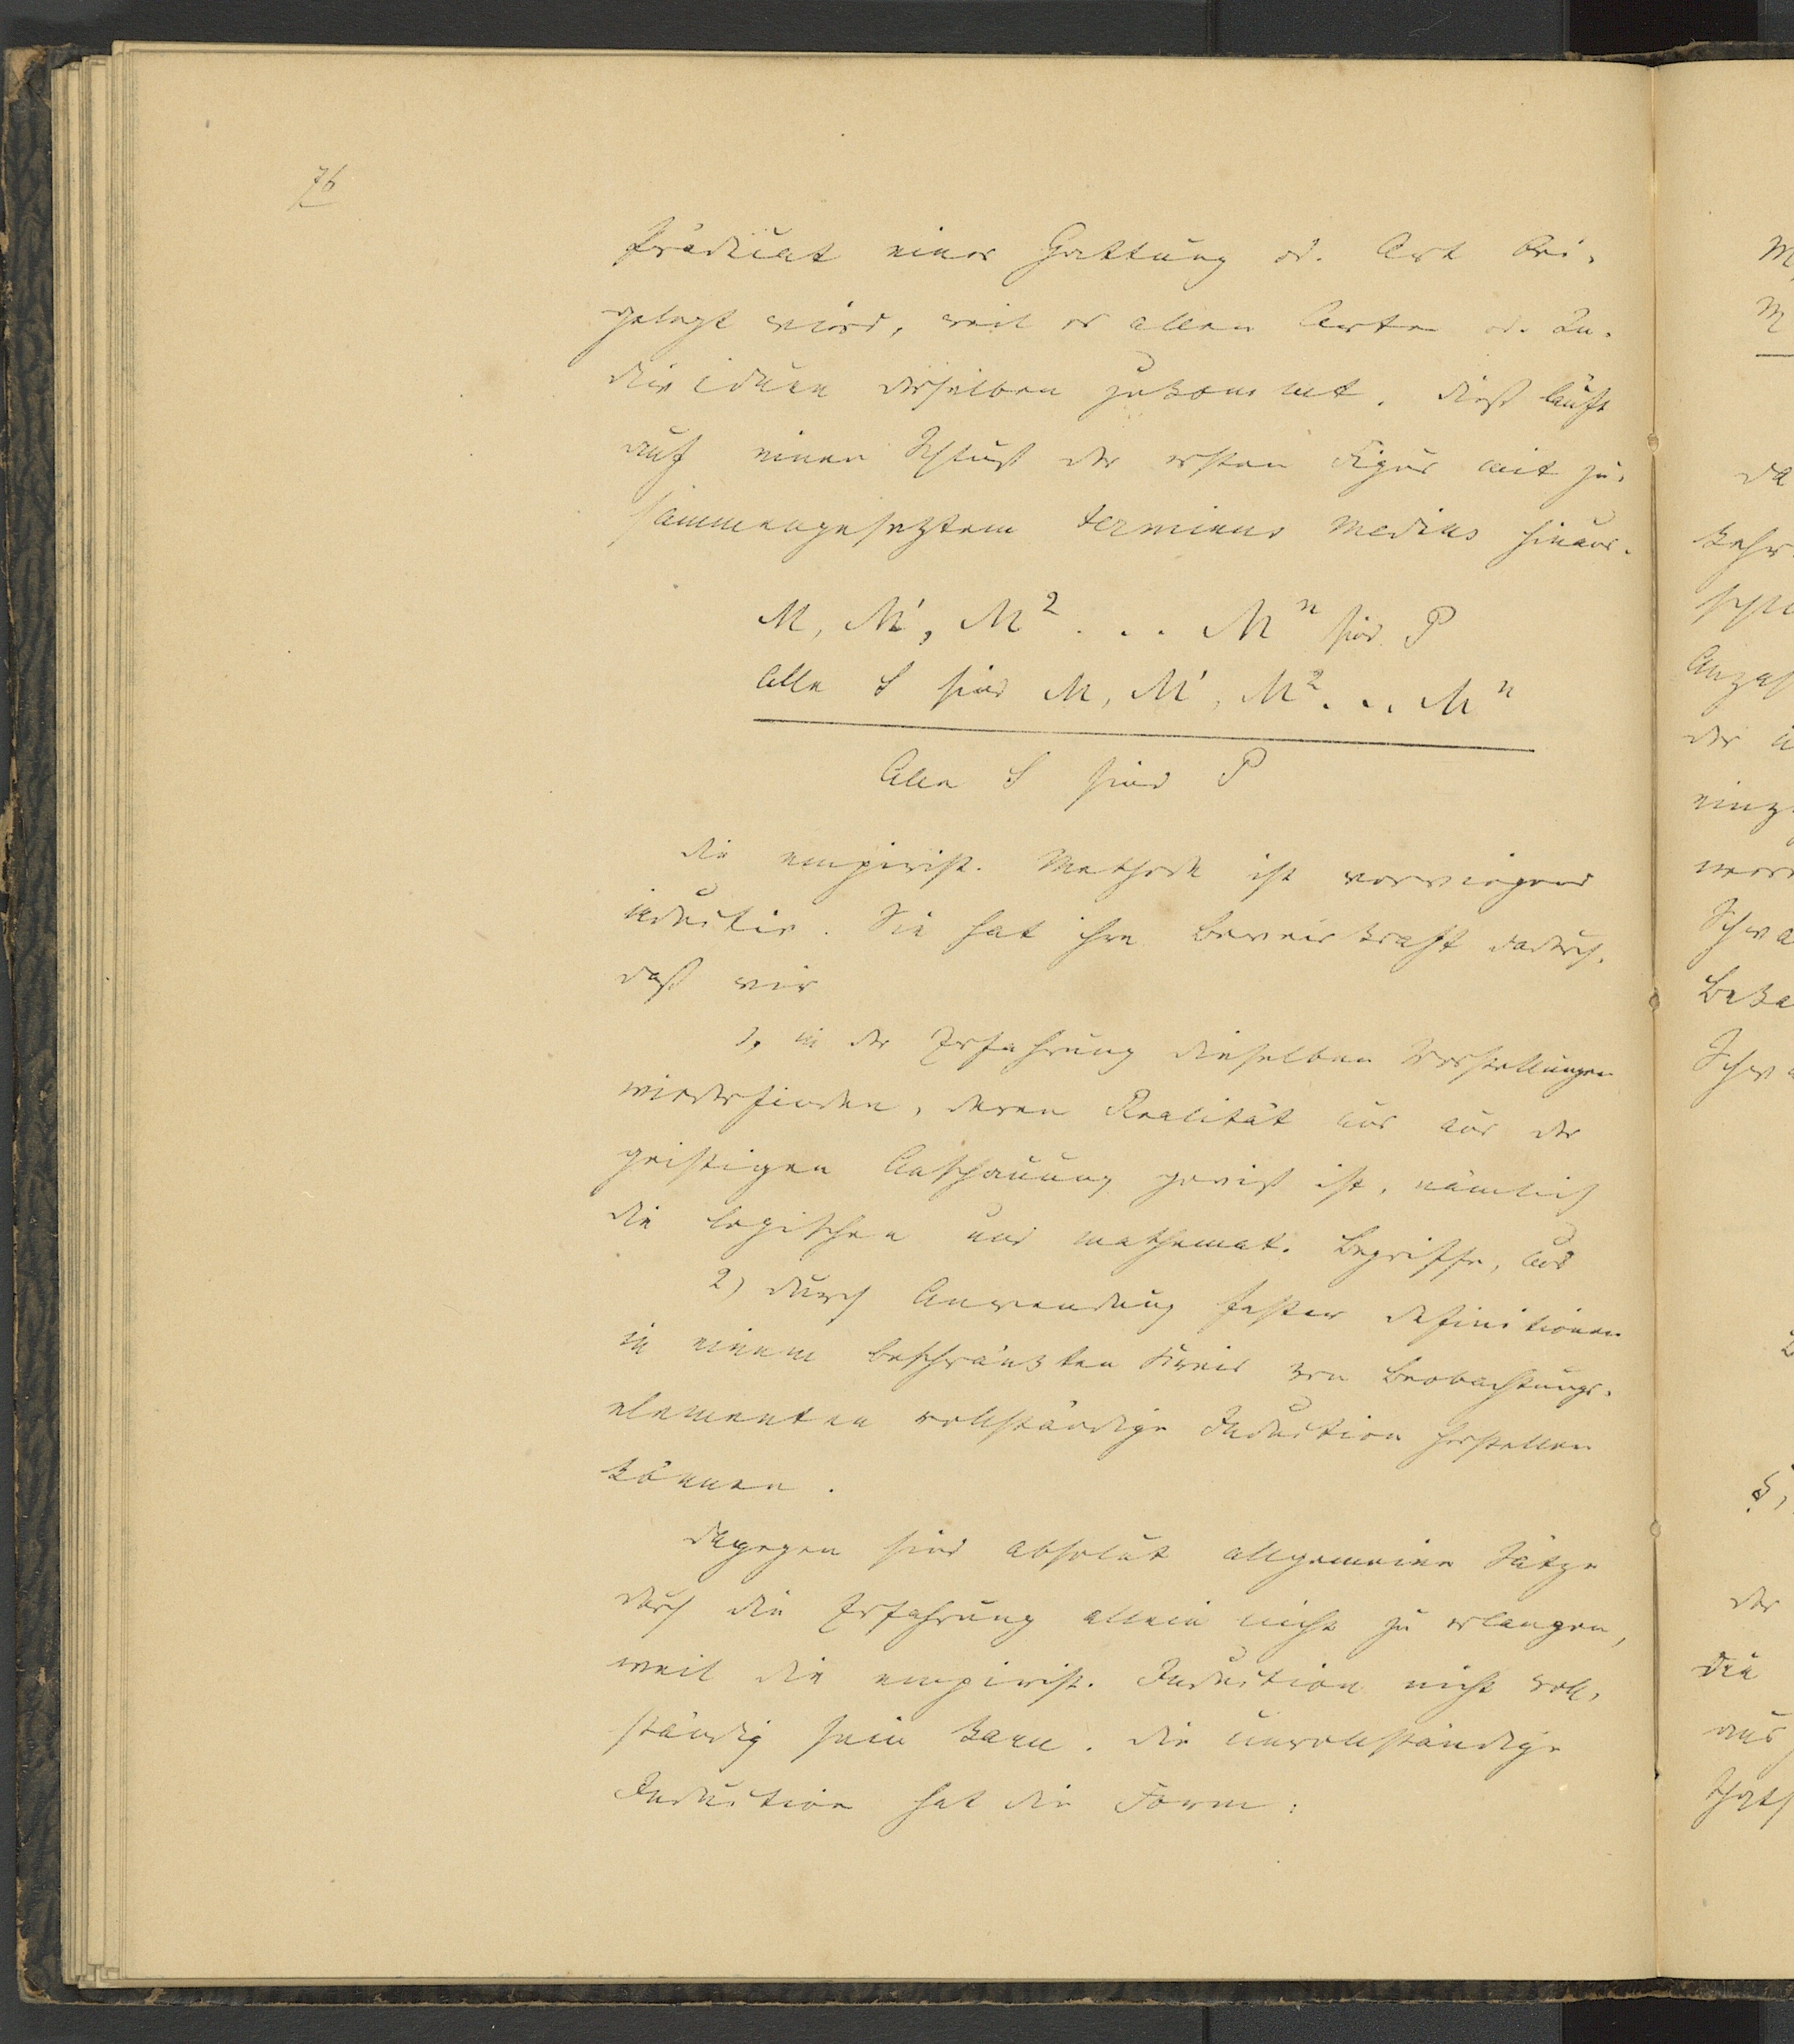 76
Prädicat einer Gattung od. Art bei-
gelegt wird, weil es allen Arten od. In-
dividuen derselben zukommt. Dieß läuft
auf einen Schluß der ersten Figur mit zu-
sammengesetztem terminus medius hinaus.
M, M', M² . . . Mⁿ sind P
Alle S sind M, M', M² . . . Mⁿ
Alle S sind P
Die empirisch. Methode ist vorwiegend
inductiv. Sie hat ihre Beweiskraft dadurch,
daß wir
1, in der Erfahrung dieselben Vorstellungen
wiederfinden, deren Realität uns aus der
geistigen Anschauung gewiß ist, nämlich
die logischen und mathemat. Begriffe, und
2) durch Anwendung fester Definitionen
in einem beschränkten Kreis von Beobachtungs-
elementen vollständige Induction herstellen
können.
Dagegen sind absolut allgemeine Sätze
durch die Erfahrung allein nicht zu erlangen,
weil die empirisch. Induction nicht voll-
ständig sein kann. Die unvollständige
Induction hat die Form: